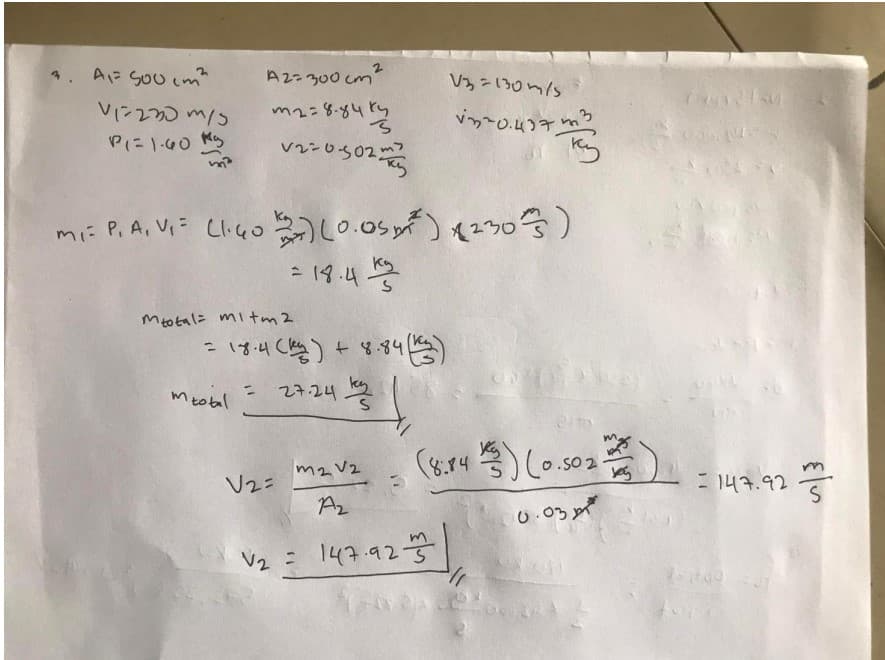 A1= 500 cm²
A2= 300 cm²
V3 = 130 m/s
V1= 230 m/s
m2= 8.84 kg/s
v3= 0.437 m³/kg
P1= 1.60 kg/m³
v2= 0.502 m³/kg
m1= P1 A1 V1 = (1.60 kg/m³)(0.05 m²) x (230 m/s)
= 18.4 kg/s
mtotal= m1+m2
= 18.4 (kg/s) + 8.84 (kg/s)
mtotal = 27.24 kg/s
V2= m2 v2/A2 = (8.84 kg/s)(0.502 m³/kg)/0.03 m² = 147.92 m/s
V2 = 147.92 m/s